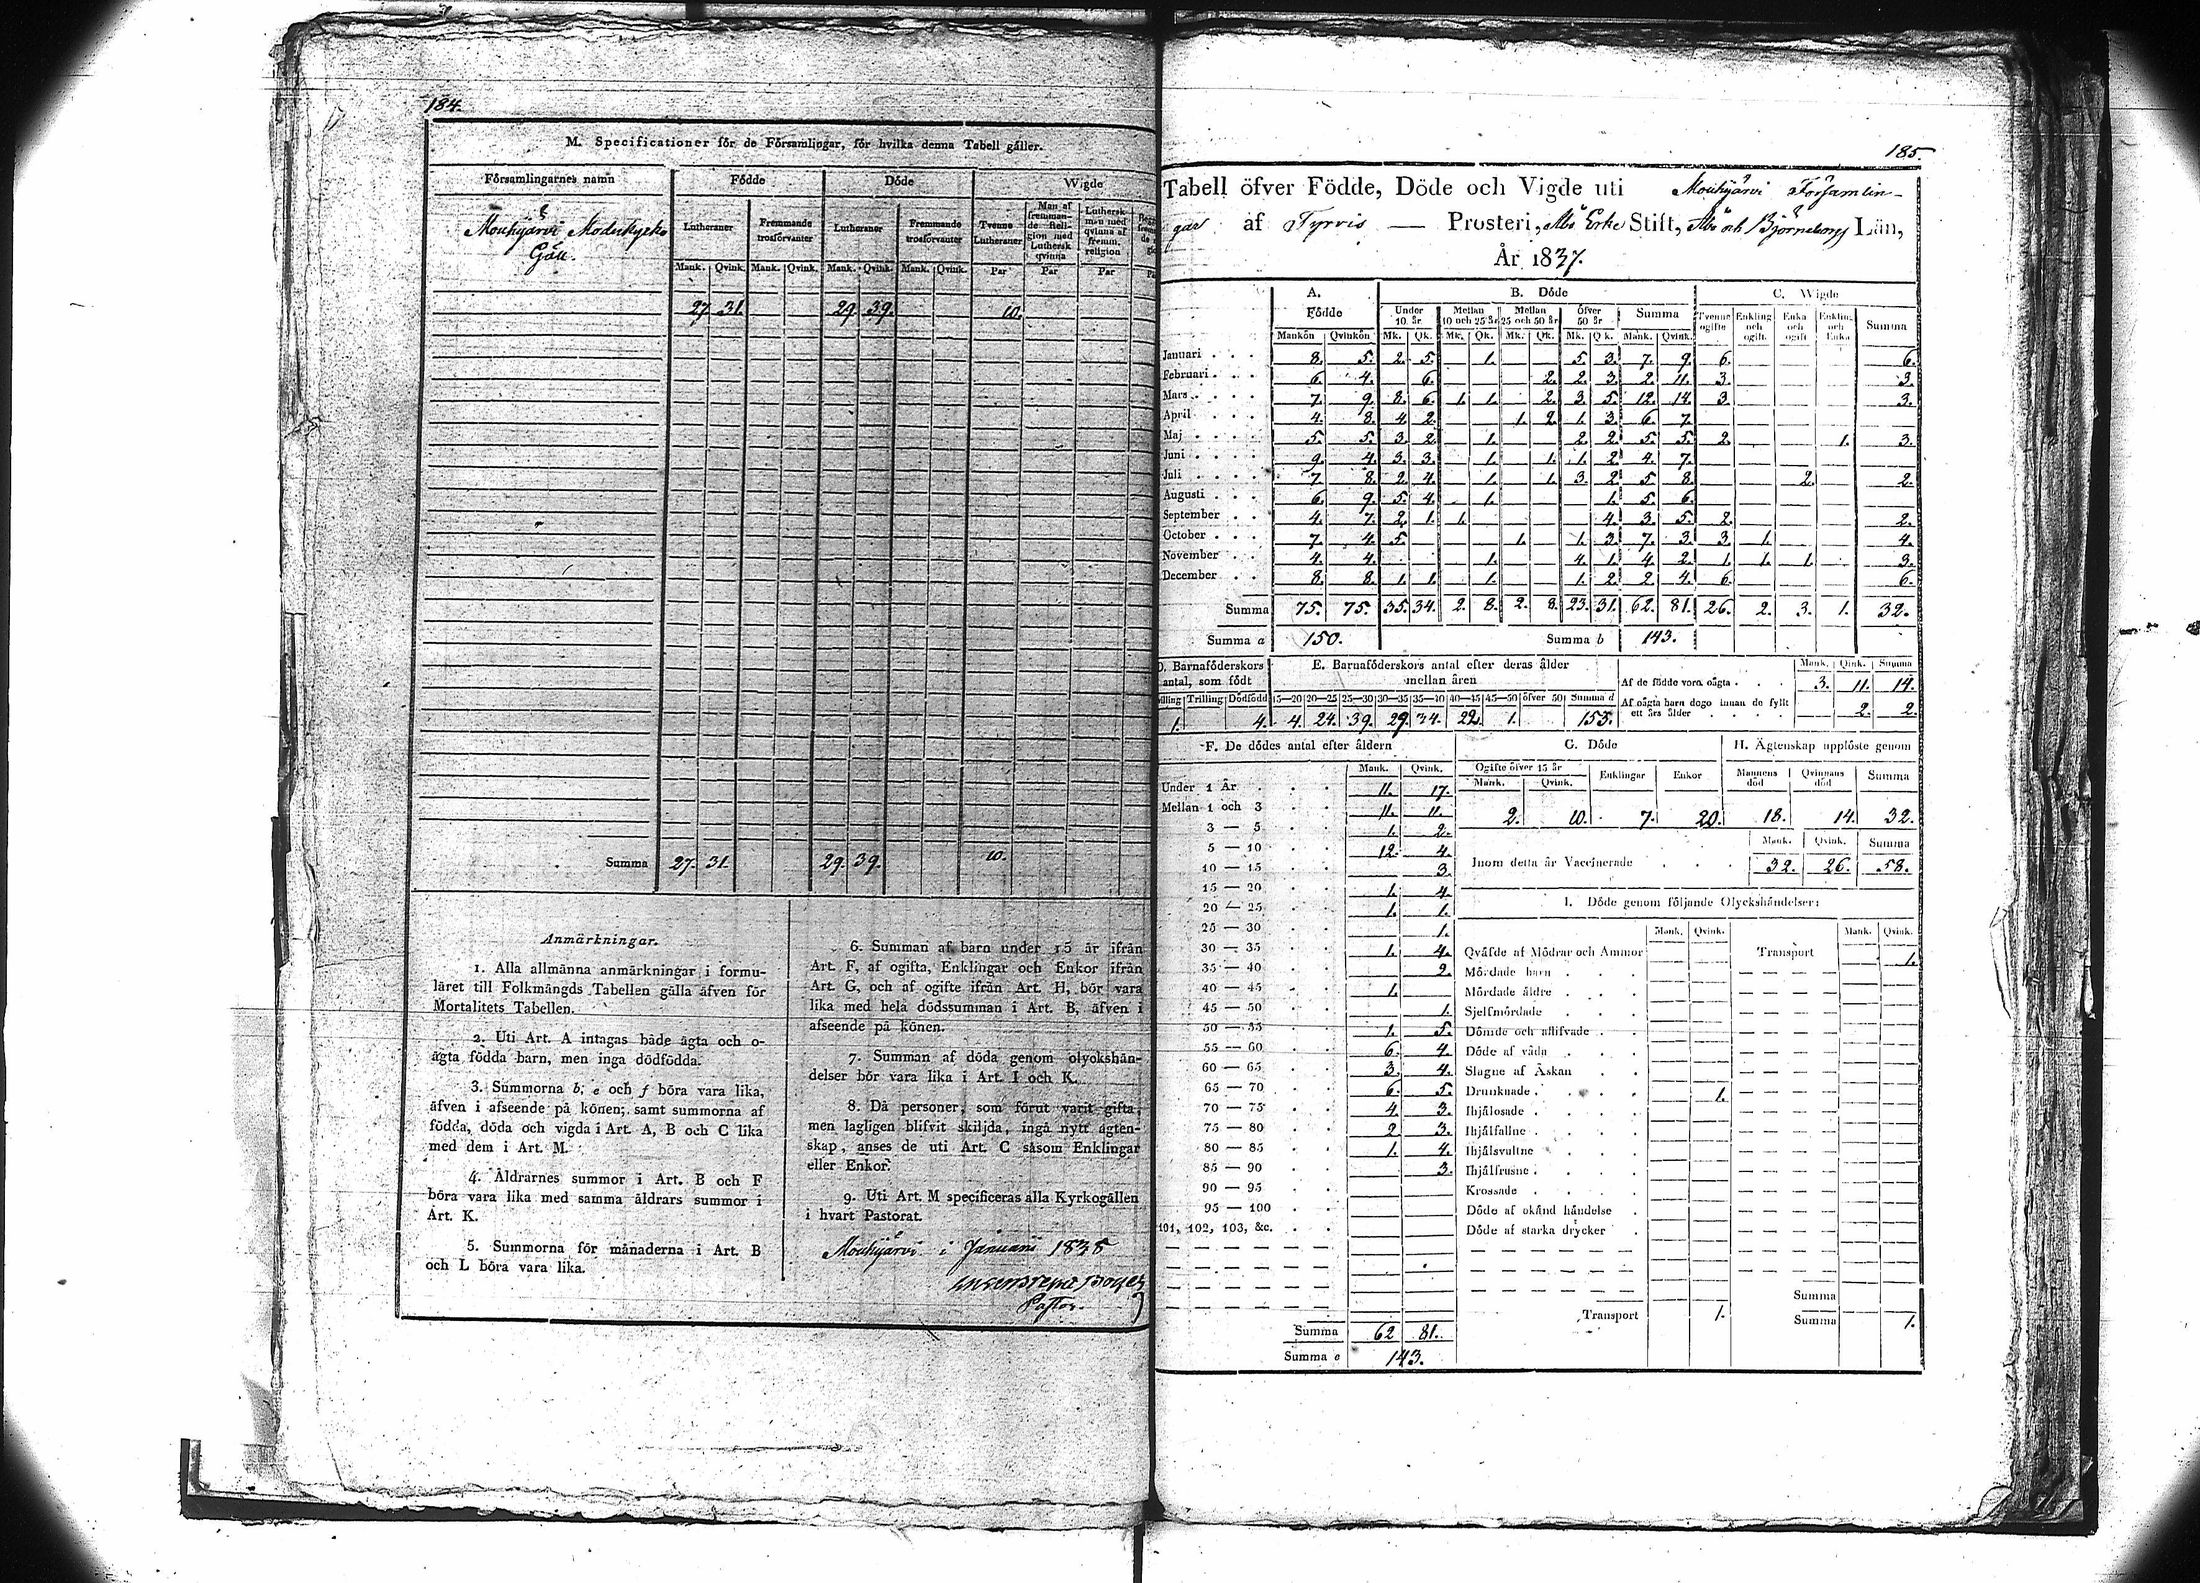 184.
M. Specificationer för de Församlingar, för hvilka denna Tabell gäller.
Församlingarnes namn Födde Döde Wigde
Lutheraner Fremmande trosförvanter Lutheraner Fremmande trosförvanter Tvenne Lutheraner Man af fremmande Religion med Luthersk qvinna Luthersk man med qvinna af fremm. religion
Mank. Qvink. Mank. Qvink. Mank. Qvink. Mank. Qvink. Par Par Par
Mouhijärvi Moderkyrko
Gäll.
27. 31. 29. 39. 10.
Summa 27. 31. 29. 39. 10.
Anmärkningar.
1. Alla allmänna anmärkningar i formu-
läret till Folkmängds Tabellen gälla äfven för
Mortalitets Tabellen.
2. Uti Art. A intagas både ägta och o-
ägta födda barn, men inga dödfödda.
3. Summorna b, e och f böra vara lika,
äfven i afseende på könen; samt summorna af
födda, döda och vigda i Art. A, B och C lika
med dem i Art. M.
4. Åldrarnes summor i Art. B och F
böra vara lika med samma åldrars summor i
Art. K.
5. Summorna för månaderna i Art. B
och L böra vara lika.
6. Summan af barn under 15 år ifrån
Art. F, af ogifta, Enklingar och Enkor ifrån
Art. G, och af ogifte ifrån Art. H, bör vara
lika med hela dödssumman i Art. B, äfven i
afseende på könen.
7. Summan af döda genom olyckshän-
delser bör vara lika i Art. I och K.
8. Då personer, som förut varit gifta,
men lagligen blifvit skiljda, ingå nytt ägten-
skap, anses de uti Art. C såsom Enklingar
eller Enkor.
9. Uti Art. M specificeras alla Kyrkogällen
i hvart Pastorat.
Mouhijärvi i Januarii 1838
Pastor.
185.
Tabell öfver Födde, Döde och Vigde uti Mouhijärvi Församlin-
gar af Tyrvis — Prosteri, Åbo Erke Stift, Åbo och Björneborgs Län,
År 1837.
A. Födde B. Döde C. Wigde
Under 10 år. Mellan 10 och 25 år Mellan 25 och 50 år Öfver 50 år Summa Tvenne ogifte Enkling och ogift. Enka och ogift Enkling och Enka Summa
Mankön Qvinkön Mk. Qk. Mk. Qk. Mk. Qk. Mk. Qk. Mank. Qvink.
Januari 8. 5. 2. 5. 1. 5. 3. 7. 9. 6. 6.
Februari 6. 4. 6. 2. 2. 3. 2. 11. 3. 3.
Mars 7. 9. 8. 6. 1. 1. 2. 3. 5. 12. 14. 3. 3.
April 4. 8. 4. 2. 1. 2. 1. 3. 6. 7.
Maj 5. 5. 3. 2. 1. 2. 2. 5. 5. 2. 1. 3.
Juni 9. 4. 3. 3. 1. 1. 1. 2. 4. 7.
Juli 7. 8. 2. 4. 1. 1. 3. 2. 5. 8. 2. 2.
Augusti 6. 9. 5. 4. 1. 1. 5. 6.
September 4. 7. 2. 1. 1. 4. 3. 5. 2. 2.
October 7. 4. 5. 1. 1. 3. 7. 3. 3. 1. 4.
November 4. 4. 1. 4. 1. 4. 2. 1. 1. 1. 3.
December 8. 8. 1. 1. 1. 1. 2. 2. 4. 6. 6.
Summa 75. 75. 35. 34. 2. 8. 2. 8. 23. 31. 62. 81. 26. 2. 3. 1. 32.
Summa a 150. Summa b 143.
D. Barnaföderskors antal, som födt
Trilling Dödfödd
1. 4.
E. Barnaföderskors antal efter deras ålder mellan åren
15—20 20—25 25—30 30—35 35—40 40—45 45—50 öfver 50 Summa d
4. 24. 39. 29. 34. 22. 1. 153.
Mank. Qink. Summa
Af de födde voro oägta . . . 3. 11. 14.
Af oägta barn dogo innan de fyllt ett års ålder . . . . 2. 2.
F. De dödes antal efter åldern
Mank. Qvink.
Under 1 År 11. 17.
Mellan 1 och 3 11. 11.
3 — 5 1. 2.
5 — 10 12. 4.
10 — 15 3.
15 — 20 1. 4.
20 — 25 1. 1.
25 — 30 1.
30 — 35 1. 4.
35 — 40 2.
40 — 45 1.
45 — 50 1.
50 — 55 1. 5.
55 — 60 6. 4.
60 — 65 3. 4.
65 — 70 6. 5.
70 — 75 4. 3.
75 — 80 2. 3.
80 — 85 1. 4.
85 — 90 3.
90 — 95
95 — 100
101, 102, 103, &c.
Summa 62 81.
Summa e 143.
G. Döde
Ogifte öfver 15 år Enklingar Enkor
Mank. Qvink.
2. 10. 7. 20.
H. Ägtenskap upplöste genom
Mannens död Qvinnans död Summa
18. 14. 32.
Mank. Qvink. Summa
Inom detta år Vaccinerade . . . 32. 26. 58.
I. Döde genom följande Olyckshändelser:
Mank. Qvink. Mank. Qvink.
Qväfde af Mödrar och Ammor Transport 1.
Mördade barn
Mördade äldre
Sjelfmördade
Dömde och aflifvade
Döde af våda
Slagne af Åskan
Drunknade 1.
Ihjälosade
Ihjälfallne
Ihjälsvultne
Ihjälfrusne
Krossade
Döde af okänd händelse
Döde af starka drycker
Summa
Transport 1. Summa 1.